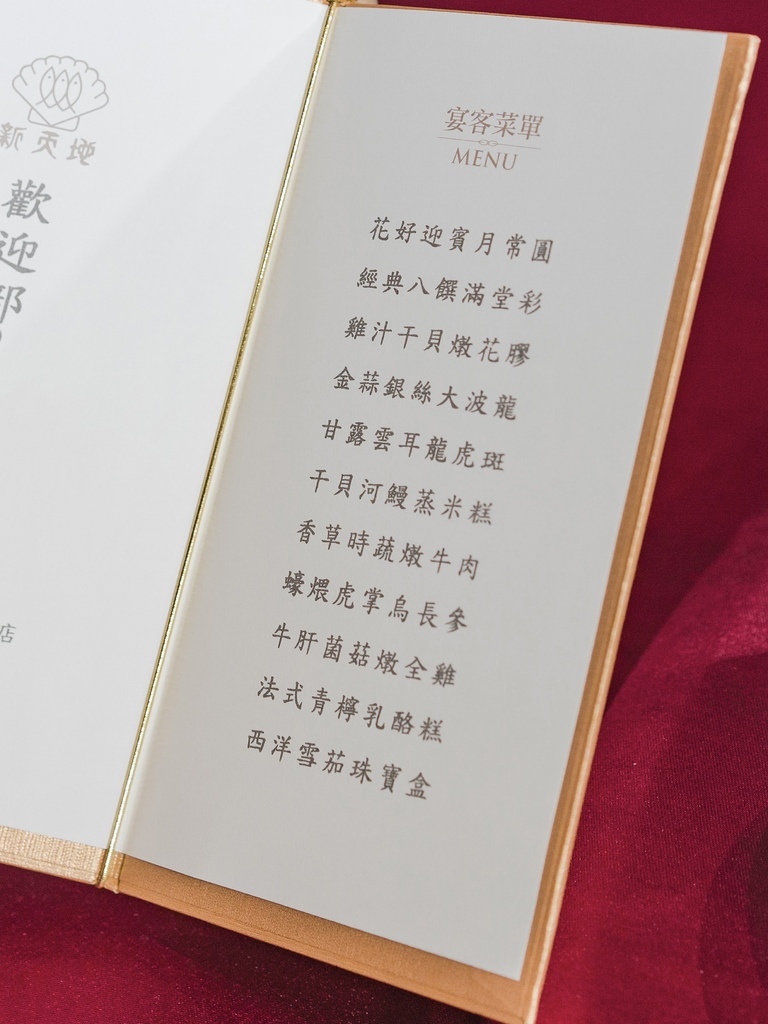 新天地
歡迎
店
宴客菜單
MENU
花好迎賓月常圓
經典八饌滿堂彩
雞汁干貝燉花膠
金蒜銀絲大波龍
甘露雲耳龍虎斑
干貝河鰻蒸米糕
香草時蔬燉牛肉
蠔煨虎掌烏長參
牛肝菌菇燉全雞
法式青檸乳酪糕
西洋雪茄珠寶盒